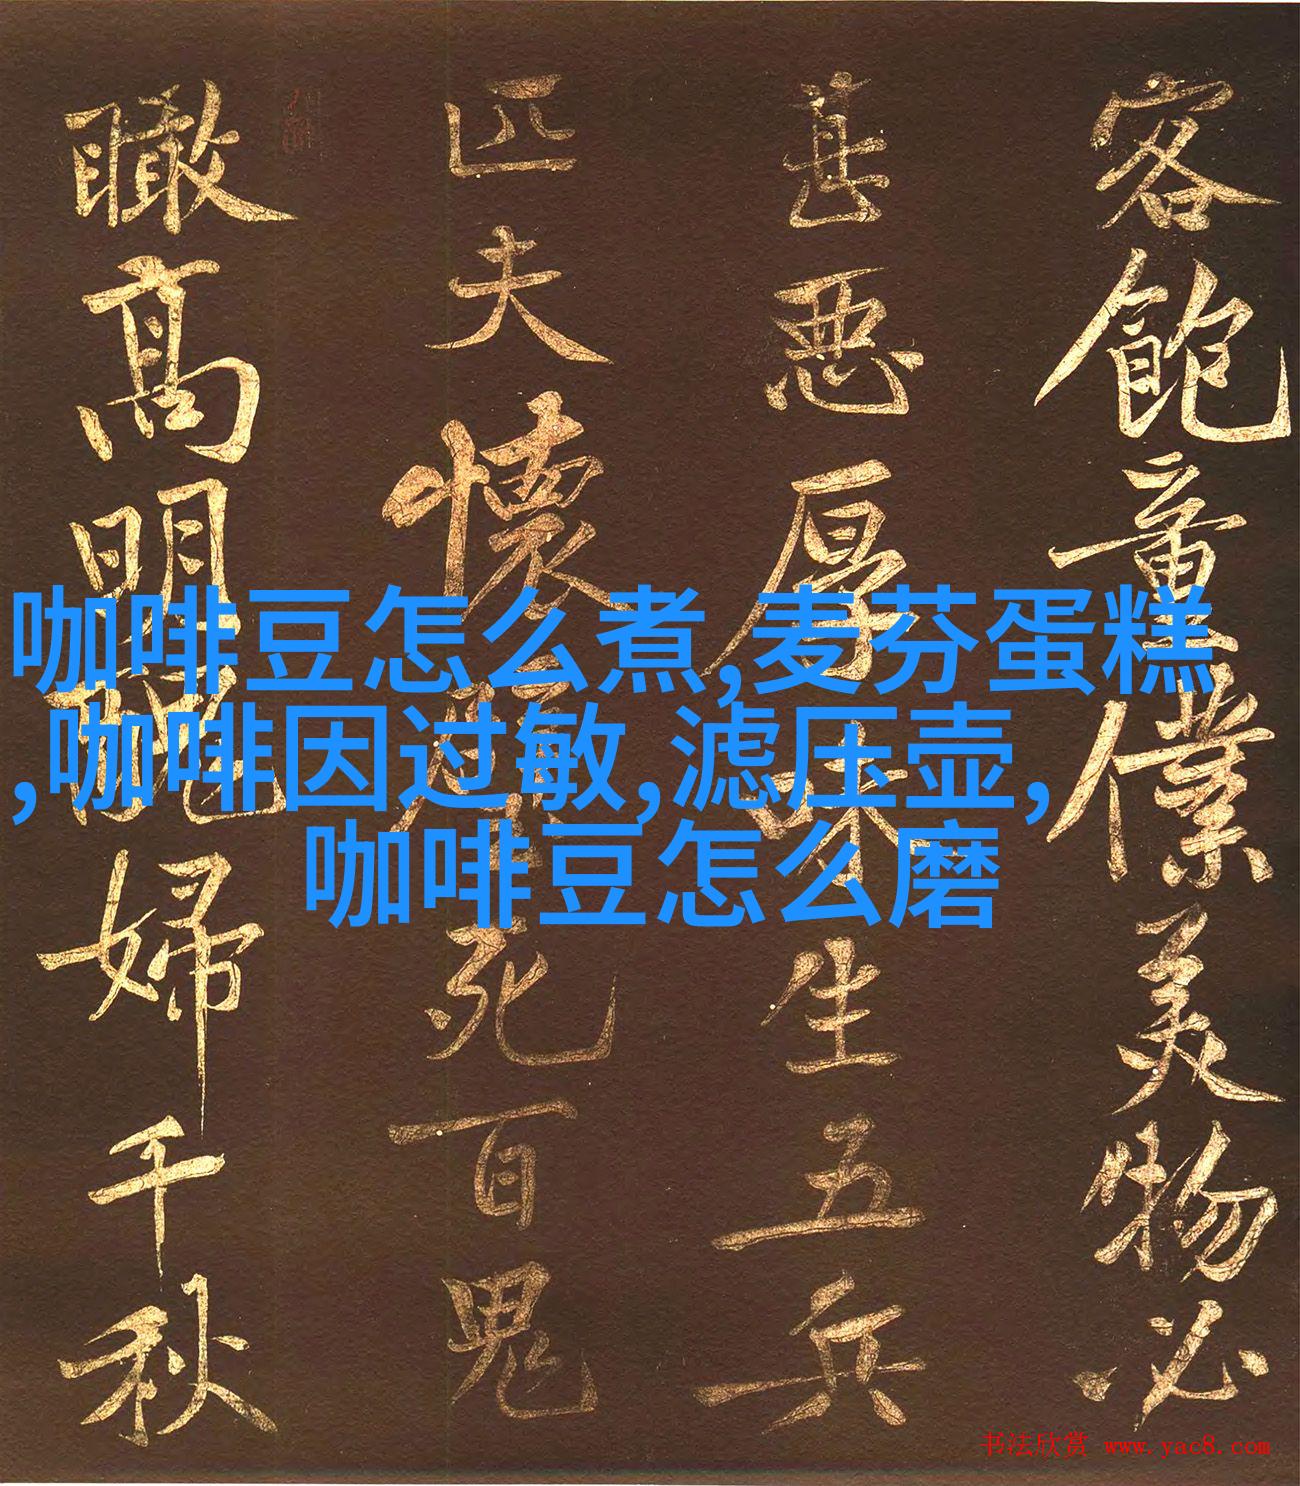 咖啡豆怎么煮,麦芬蛋糕
,咖啡因过敏,滤压壶,
咖啡豆怎么磨
客飽童僕美物必
甚惡厚味生五兵
匹夫懷死百鬼
瞰高明醜婦千秋
书法欣赏 www.yac8.com